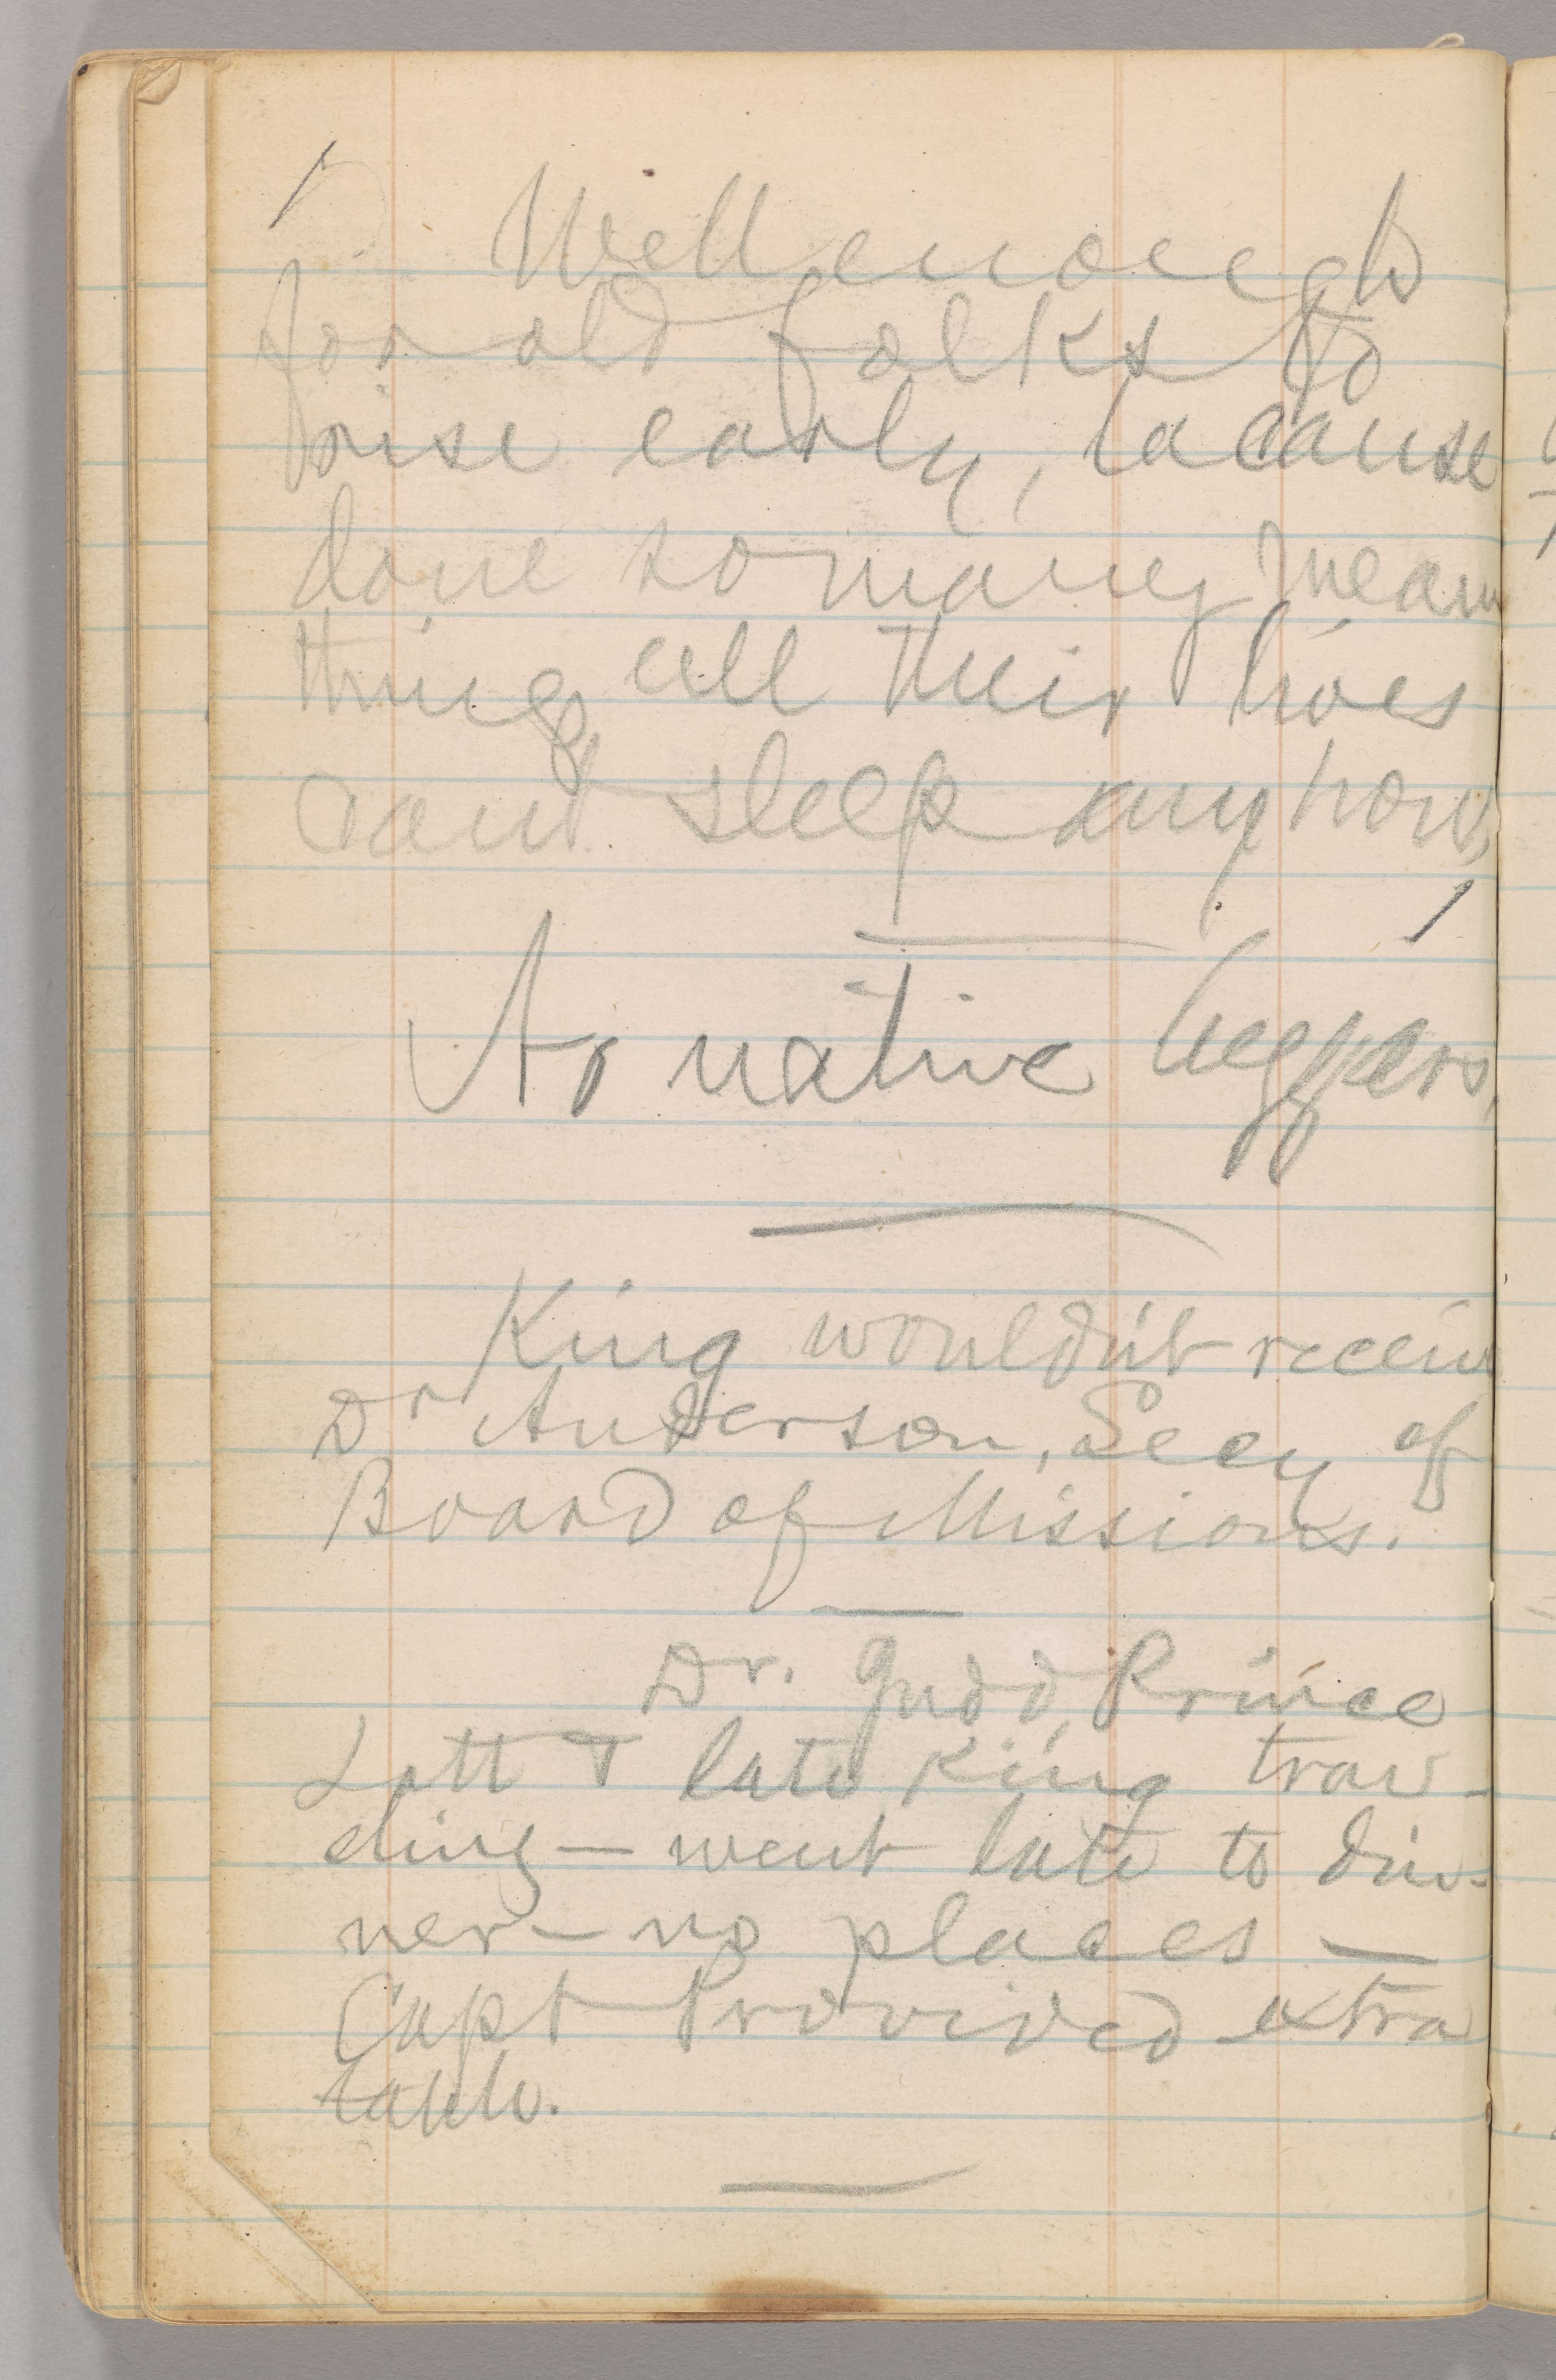 Well enough
for old folks to
rise early, cause
done so many mean
things all their lives
cant sleep anyhow.
No native beggars.
King wouldn't receive
Dr Anderson, Secy of
Board of Missions.
Dr. Judd, Prince
Lott & late King trav-
eling — went late to din-
ner — no places —
Capt Provided extra
table.